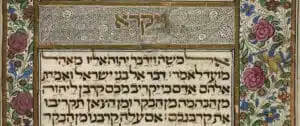 ויקרא
אל משה וידבר יהוה אליו מאהל
מועד לאמר דבר אל בני ישראל ואמרת
אלהם אדם כי יקריב מכם קרבן ליהוה
מן הבהמה מן הבקר ומן הצאן תקריבו
את קרבנכם אם עלה קרבנו מן הבקר